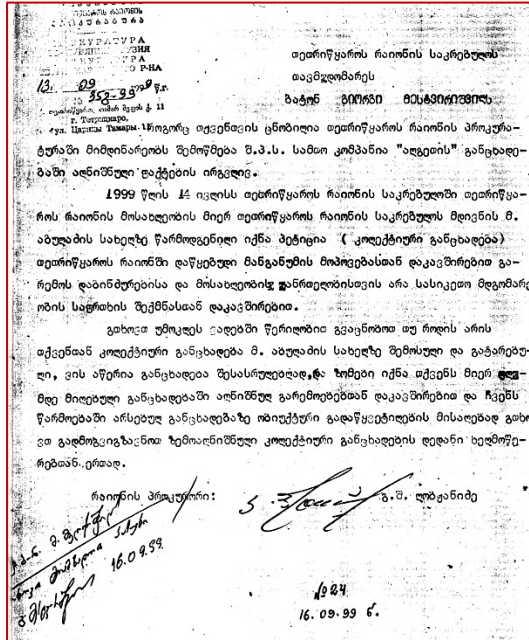 КУРАТУРА
УЗИЯ
Р-НА
13. 09 1999 წ.г.
№ 353-99
თეთრიწყარო, თამარ მეფის ქ. 11
г. Тетрицкаро,
ул. Царицы Тамары. 11
თეთრიწყაროს რაიონის საკრებულოს
თავმჯდომარეს
ბატონ გიორგი მესტვირიშვილს
როგორც თქვენთვის ცნობილია თეთრიწყაროს რაიონის პროკურა-
ტურაში მიმდინარეობს შემოწმება შ.პ.ს. სამთო კომპანია "ალგეთის" განცხადე-
ბაში აღნიშნული ფაქტების ირგვლივ.
1999 წლის 14 ივლისს თეთრიწყაროს რაიონის საკრებულოში თეთრიწყა-
როს რაიონის მოსახლეობის მიერ თეთრიწყაროს რაიონის საკრებულოს მდივნის მ.
აბულაძის სახელზე წარმოდგენილი იქნა პეტიცია ( კოლექტიური განცხადება)
თეთრიწყაროს რაიონში დაწყებული მანგანუმის მოპოვებასთან დაკავშირებით გა-
რემოს დაბინძურებისა და მოსახლეობის ჯანრთელობისთვის არა სასიკეთო მდგომარე-
ობის საფრთხის შექმნასთან დაკავშირებით.
გთხოვთ უმოკლეს ვადებში წერილობით გვაცნობოთ თუ როდის არის
თქვენთან კოლექტიური განცხადება მ. აბულაძის სახელზე შემოსული და გატარებუ-
ლი, ვის აწერია განცხადება შესასრულებლად, და ზომები იქნა თქვენს მიერ
მდე მიღებული განცხადებაში აღნიშნულ გარემოებებთან დაკავშირებით და ჩვენს
წარმოებაში არსებულ განცხადებაზე ობიექტური გადაწყვეტილების მისაღებად გთხო-
ვთ გადმოგვიგზავნოთ ზემოაღნიშნული კოლექტიური განცხადების დედანი ხელმოწე-
რებთან ერთად.
რაიონის პროკურორი: გ.შ. ლობჟანიძე
16.09.99.
№24
16.09.99 წ.